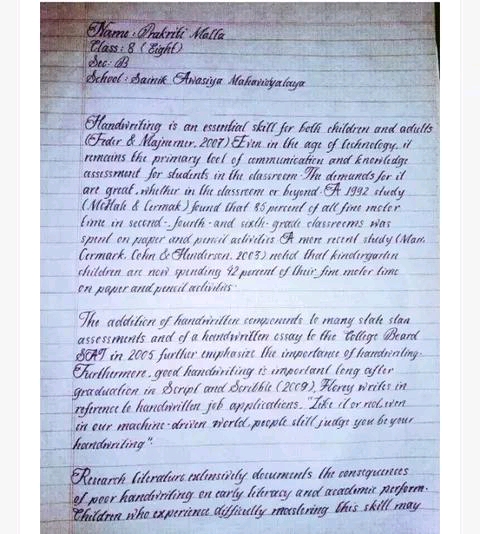 Name : Prakriti Malla
Class : 8 ( Eight)
Sec : B
School : Sainik Awasiya Mahavidyalaya
Handwriting is an essential skill for both children and adults
(Feder & Majnemer, 2007) Even in the age of technology, it
remains the primary tool of communication and knowledge
assessment for students in the classroom. The demands for it
are great, whether in the classroom or beyond. A 1992 study
(McHale & Cermak) found that 85 percent of all fine motor
time in second-, fourth- and sixth- grade classrooms was
spent on paper and pencil activities. A more recent study (Marr,
Cermark, Cohn & Henderson, 2003) noted that kindergarten
children are now spending 42 percent of their fine motor time
on paper and pencil activities.
The addition of handwritten components to many state stan
assessments and of a handwritten essay to the College Board
SAT in 2005 further emphasize the importance of handwriting.
Furthermore, good handwriting is important long after
graduation in Script and Scribble (2009), Florey writes in
reference to handwritten job applications, "Like it or not, even
in our machine-driven world, people still judge you be your
handwriting".
Research literature extensively documents the consequences
of poor handwriting on early literacy and academic perform-
Children who experience difficulty mastering this skill may